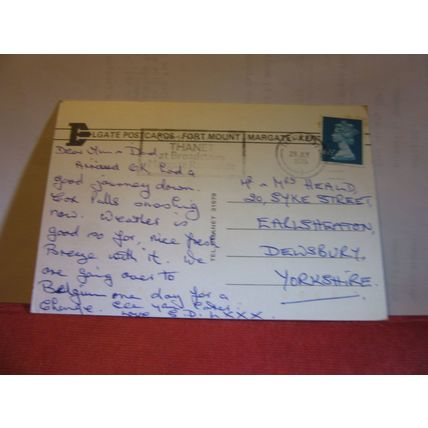 ELGATE POSTCARDS - FORT MOUNT MARGATE - KENT
THANET
at Broadstairs
TEL. THANET 21576
Dear Mum & Dad,
Arrived O.K. had a
good journey down.
now. Weather is
good so far, nice fresh
breeze with it. We
are going over to
Belgium one day for a
change. See you later.
love S. D. L XXX.
Mr & Mrs HEALD,
20, SYKE STREET,
EARLSHEATON,
DEWSBURY,
YORKSHIRE.